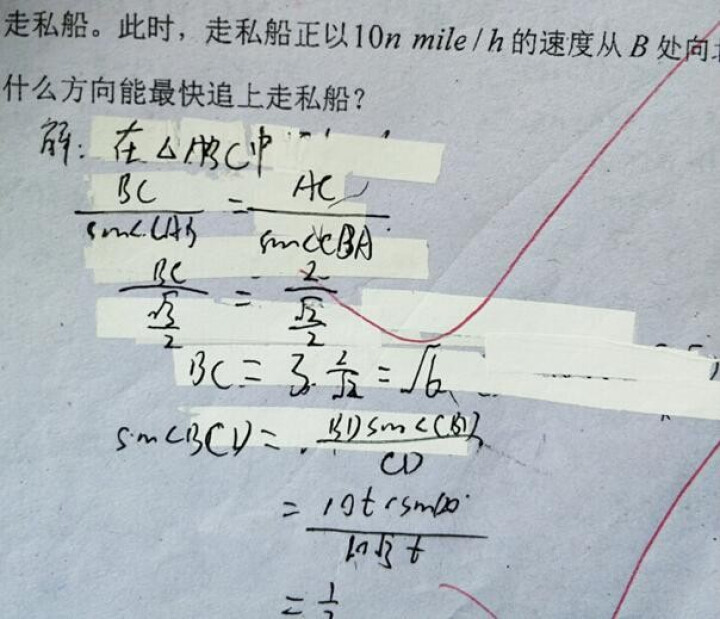 走私船。此时，走私船正以10n mile/h的速度从B处向
什么方向能最快追上走私船？
解：在△ABC中
BC/sin∠CAB = AC/sin∠CBA
BC/(√3/2) = 2/(√2/2)
BC = √3·2/√2 = √6
sin∠BCD = BDsin∠CBD/CD
= 10t·sin120°/10√3t
= 1/2